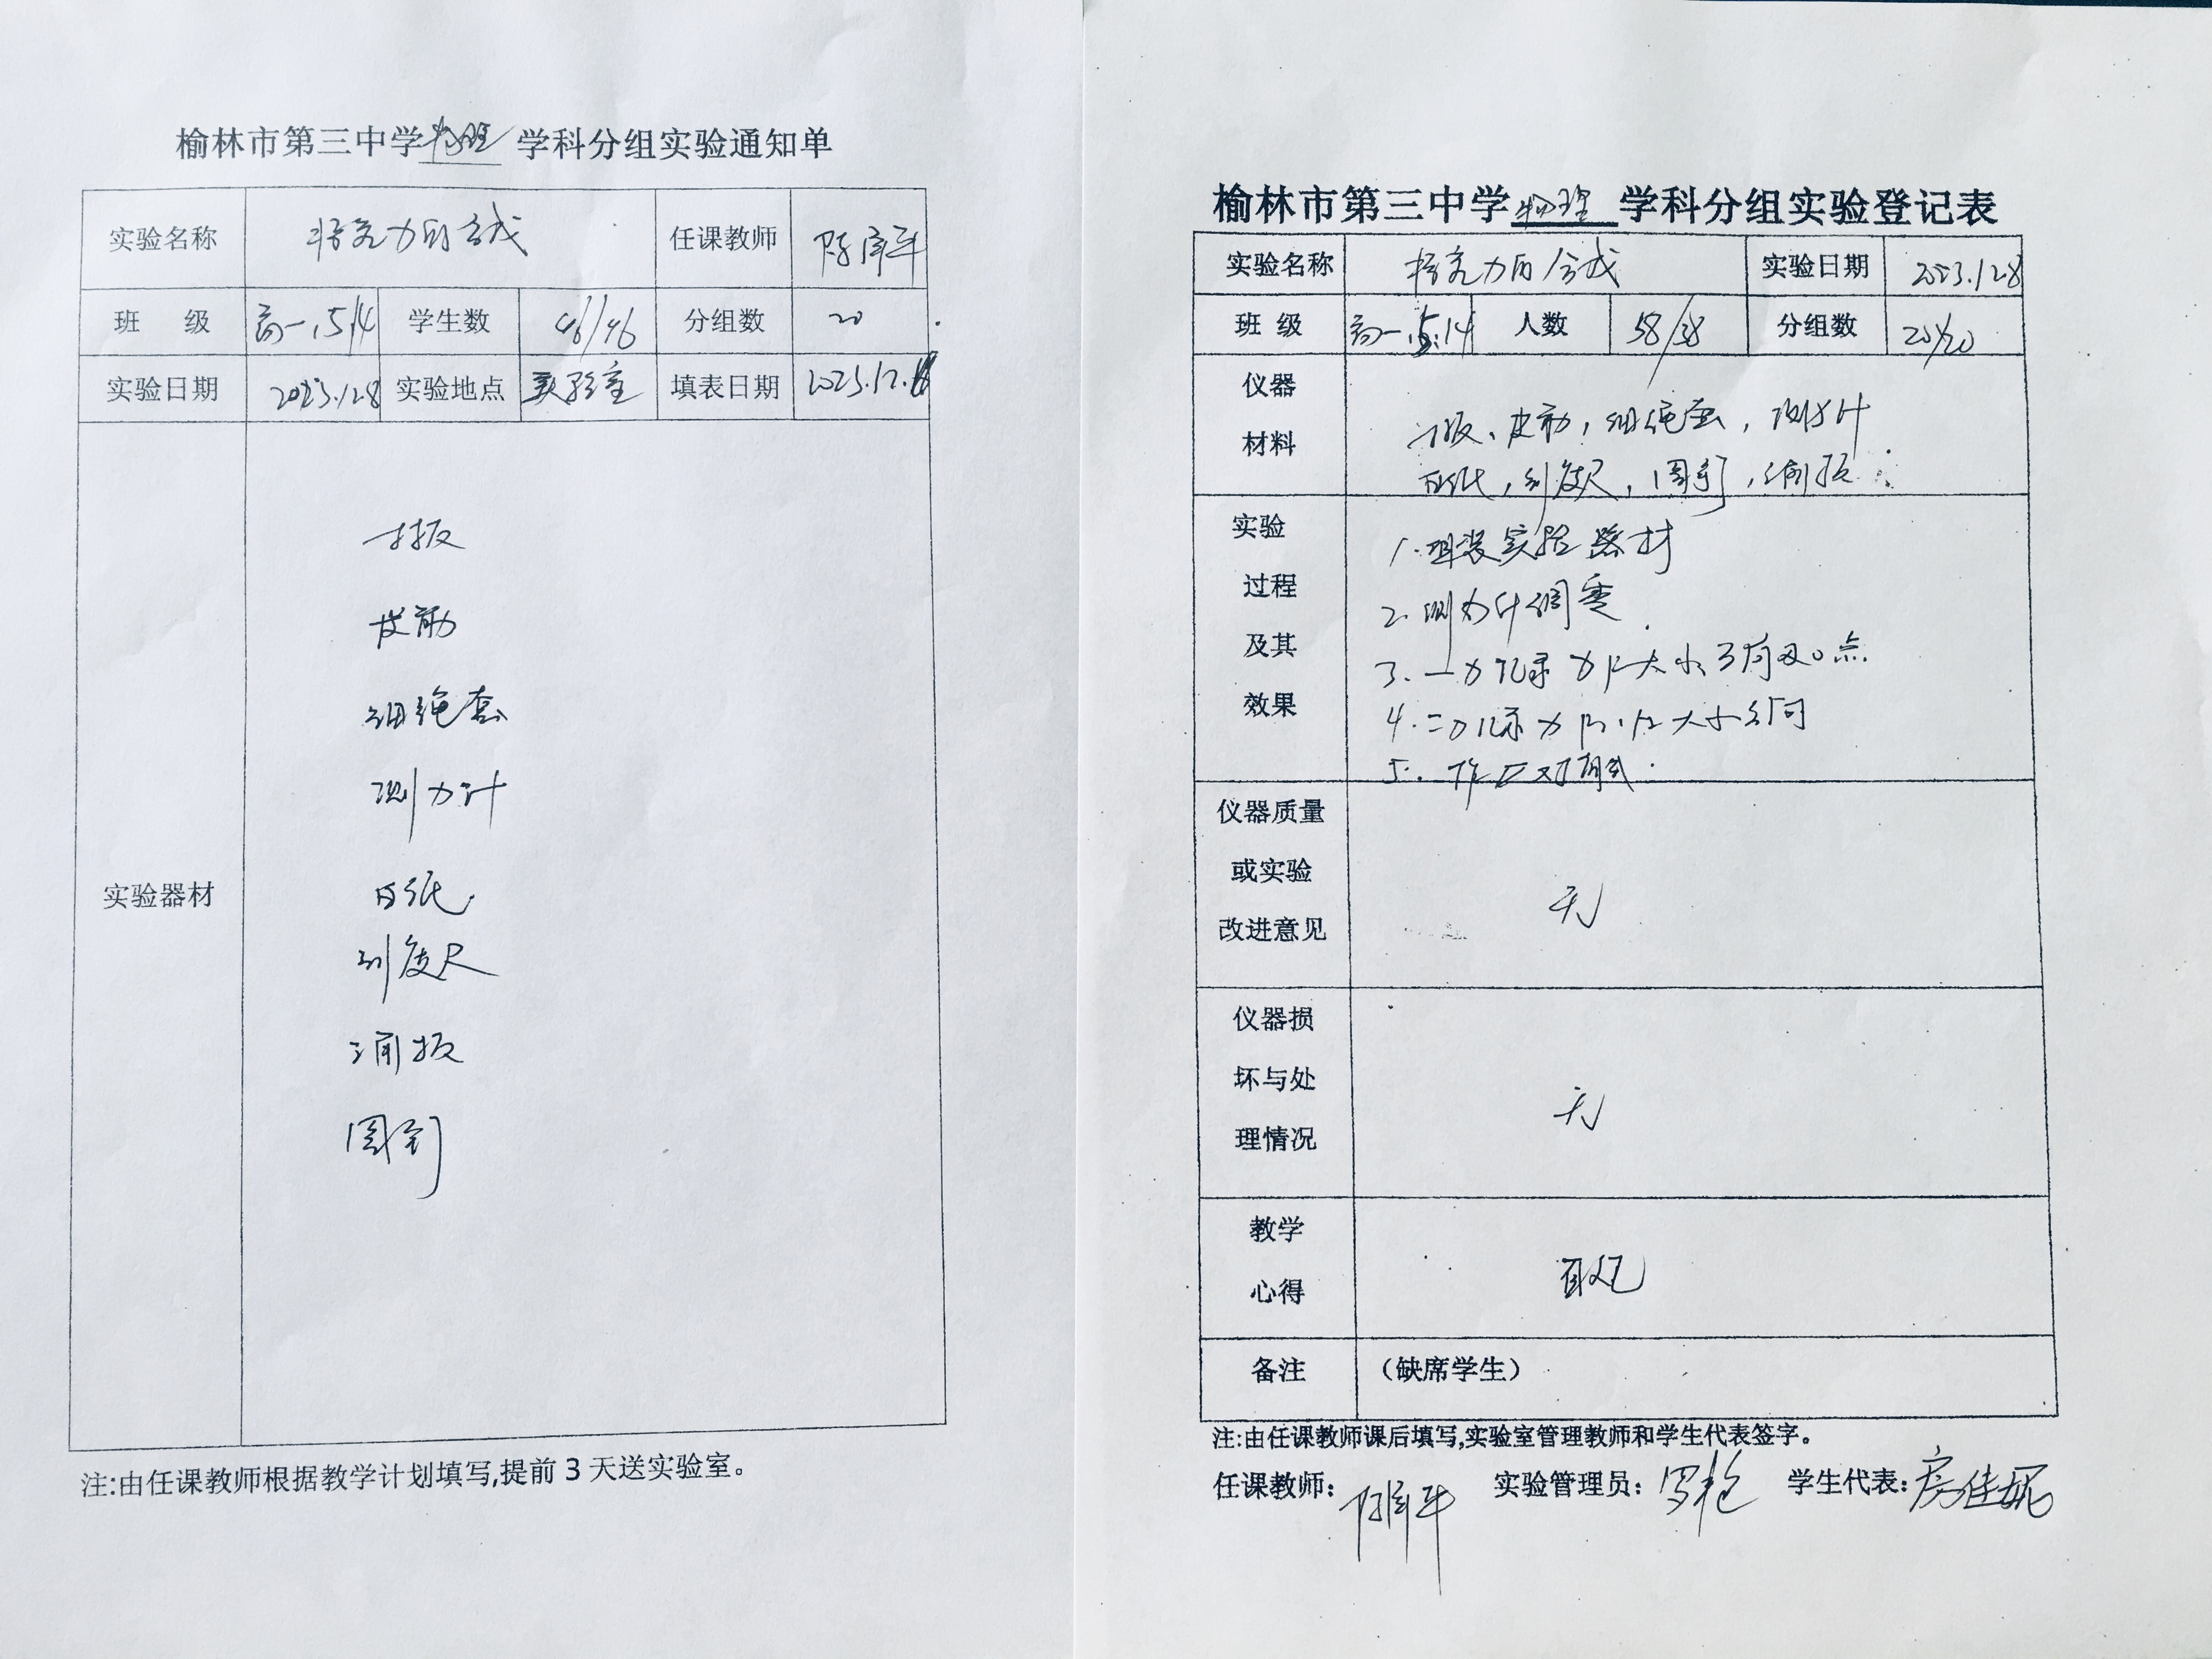 榆林市第三中学物理 学科分组实验通知单
实验名称 探究力的合成 任课教师
班 级 高一.5.14 学生数 46/46 分组数 20
实验日期 2023.12.8 实验地点 实验室 填表日期 2023.12.
实验器材
木板
皮筋
细绳套
测力计
白纸
刻度尺
三角板
图钉
注:由任课教师根据教学计划填写,提前3天送实验室。
榆林市第三中学物理 学科分组实验登记表
实验名称 探究力的合成 实验日期 2023.12.8
班 级 高一.5.14 人数 58/58 分组数 20/20
仪器
材料
木板、皮筋,细绳套,测力计
白纸,刻度尺,图钉,三角板
实验
过程
及其
效果
1.组装实验器材
2.测力计调零
3.一力记录力F大小方向及O点
4.二力记录力F1、F2大小方向
5.作图对
仪器质量
或实验
改进意见
无
仪器损
坏与处
理情况
无
教学
心得
备注 (缺席学生)
注:由任课教师课后填写,实验室管理教师和学生代表签字。
任课教师: 实验管理员: 罗艳 学生代表:房佳妮